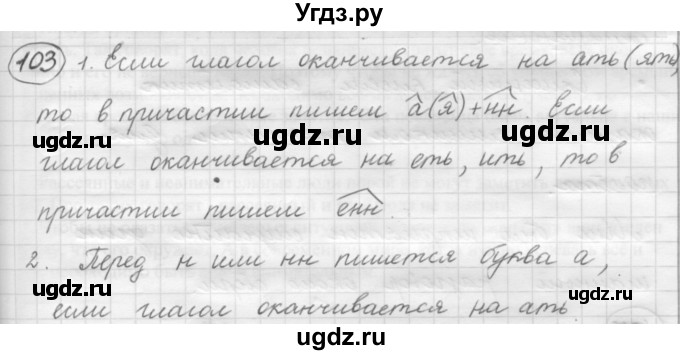 Угдз.ру
103 1. Если глагол оканчивается на ать (ять),
то в причастии пишем а(я)+нн. Если
ugdz.ru ugdz.ru
глагол оканчивается на еть, ить, то в
ugdz.ru ugdz.ru
причастии пишем енн.
2. Перед н или нн пишется буква а,
ugdz.ru ugdz.ru
если глагол оканчивается на ать
ugdz.ru